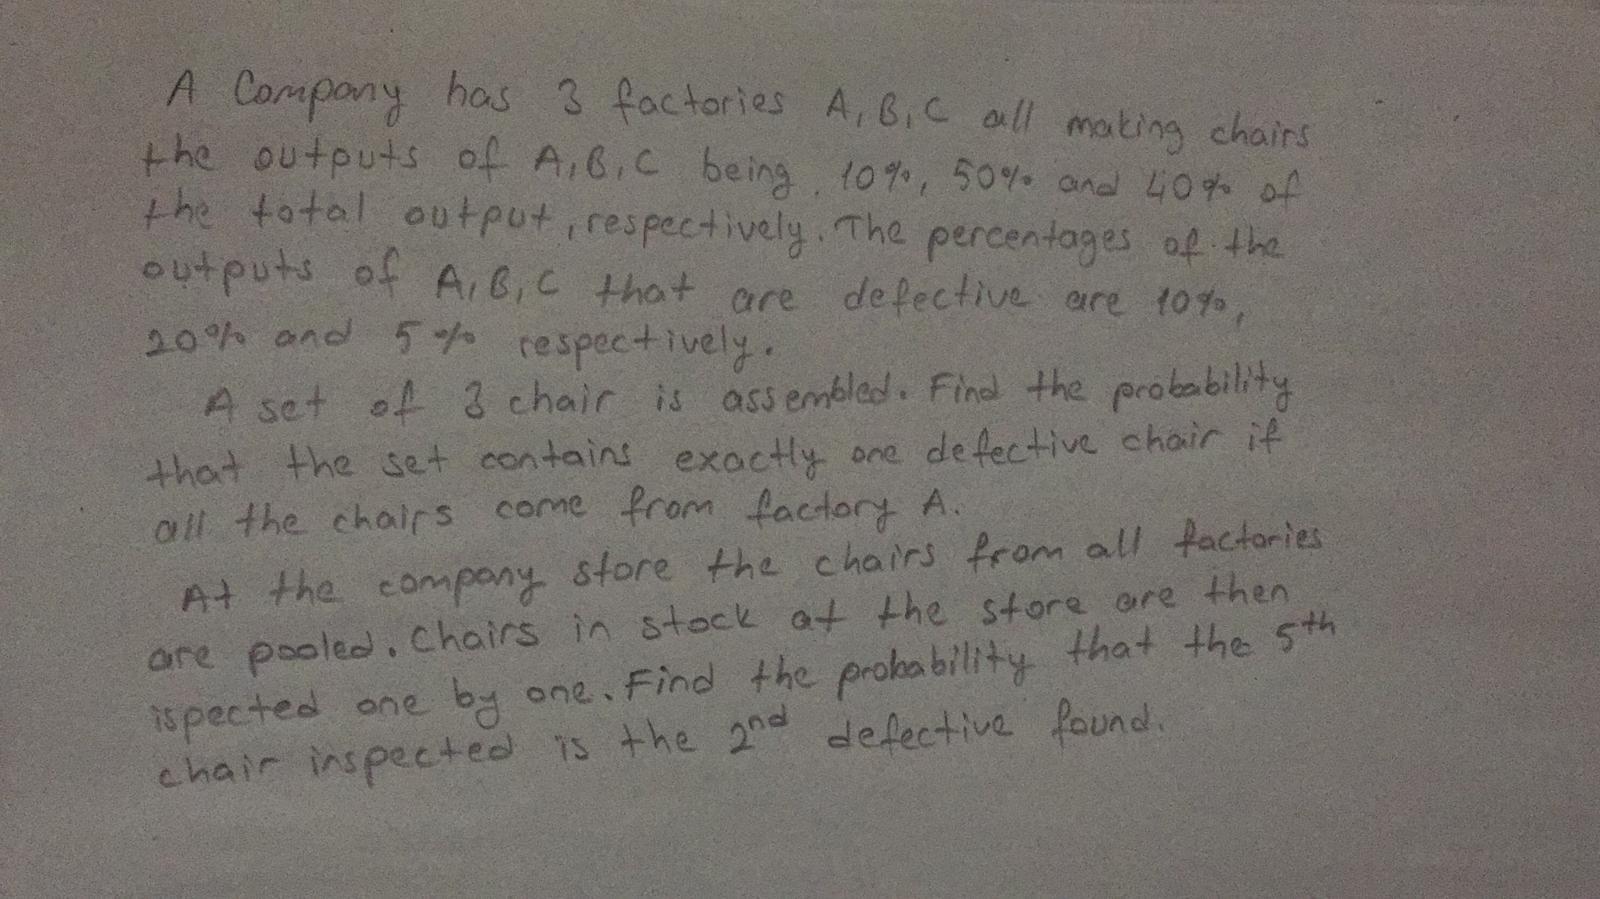 A Company has 3 factories A, B, C all making chairs
the outputs of A, B, C being 10%, 50% and 40% of
the total output, respectively. The percentages of the
outputs of A, B, C that are defective are 10%,
20% and 5% respectively.
A set of 3 chair is assembled. Find the probability
that the set contains exactly one defective chair if
all the chairs come from factory A.
At the company store the chairs from all factories
are pooled. Chairs in stock at the store are then
ispected one by one. Find the probability that the 5th
chair inspected is the 2nd defective found.